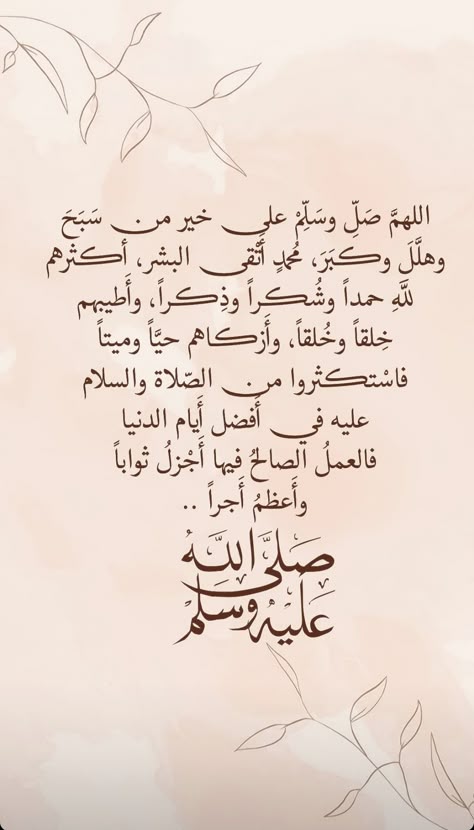 اللهمَّ صَلِّ وسَلِّمْ على خير من سَبَحَ
وهلَّلَ وكبَرَ، مُحمدٍ أَتْقى البشر، أكثرهم
للَّهِ حمداً وشُكراً وذِكراً، وأَطيبهم
خِلقاً وخُلقاً، وأَزكاهم حيَّاً وميتاً
فاسْتكثروا من الصّلاة والسلام
عليه في أَفضل أَيام الدنيا
فالعملُ الصالحُ فيها أَجْزلُ ثواباً
وأَعظمُ أَجراً ..
صَلَّى اللَّه
عَلَيْهِ وَسَلَّم